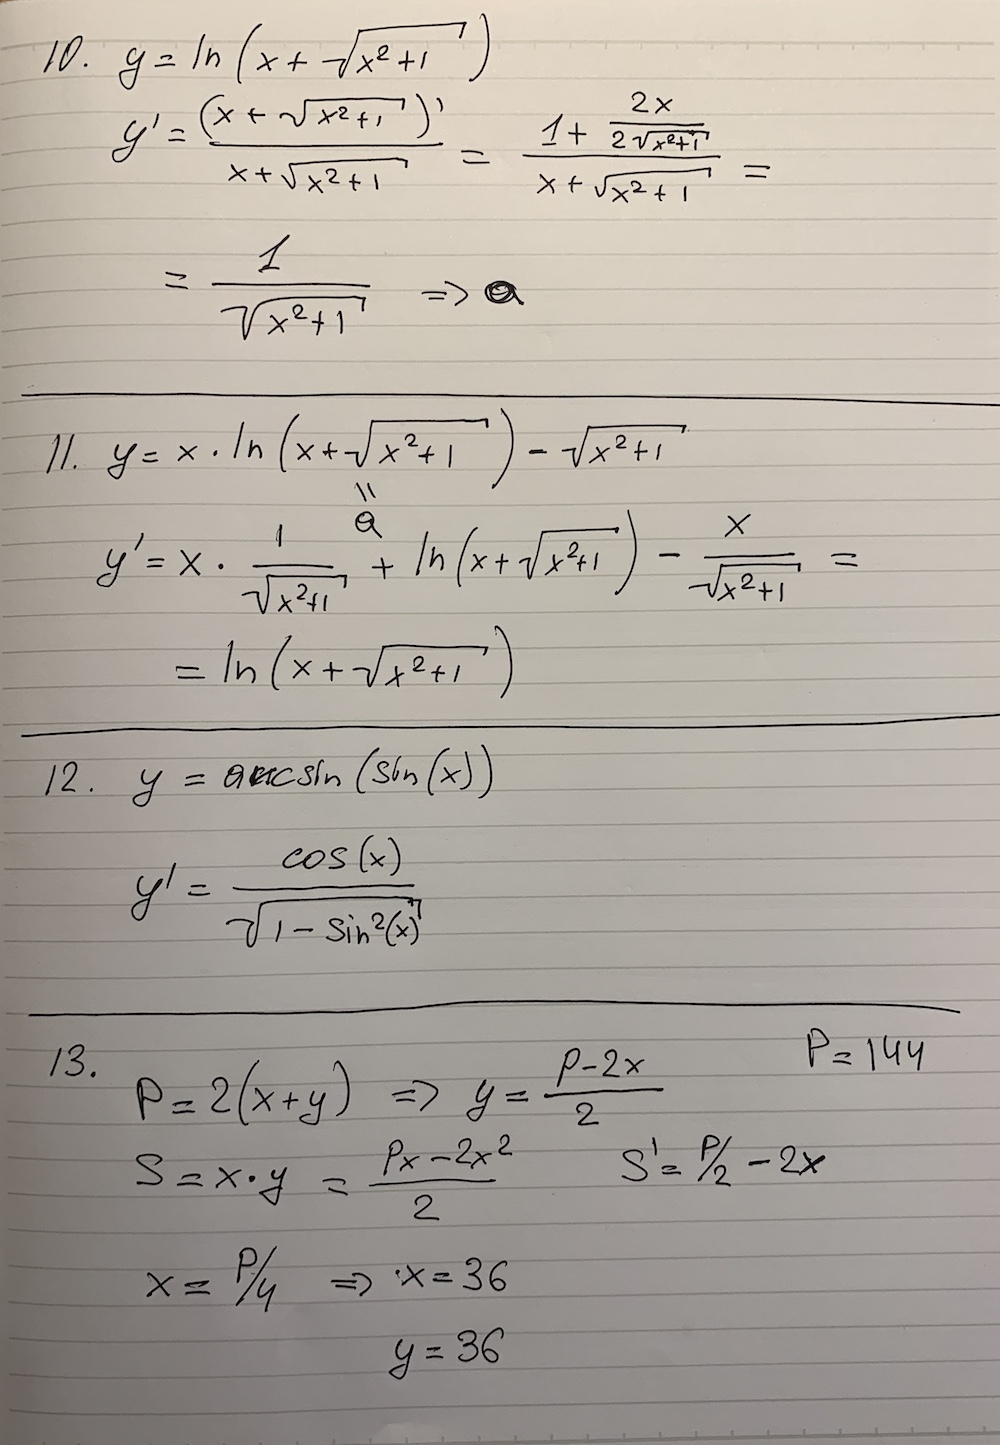 10. y = ln(x + √(x²+1))
y' = (x + √(x²+1))' / (x + √(x²+1)) = (1 + 2x / (2√(x²+1))) / (x + √(x²+1)) =
= 1 / √(x²+1) => a
11. y = x · ln(x + √(x²+1)) - √(x²+1)
= a
y' = x · 1 / √(x²+1) + ln(x + √(x²+1)) - x / √(x²+1) =
= ln(x + √(x²+1))
12. y = arcsin(sin(x))
y' = cos(x) / √(1 - sin²(x))
13. P = 144
P = 2(x+y) => y = (P-2x) / 2
S = x·y = (Px - 2x²) / 2 S' = P/2 - 2x
x = P/4 => x = 36
y = 36